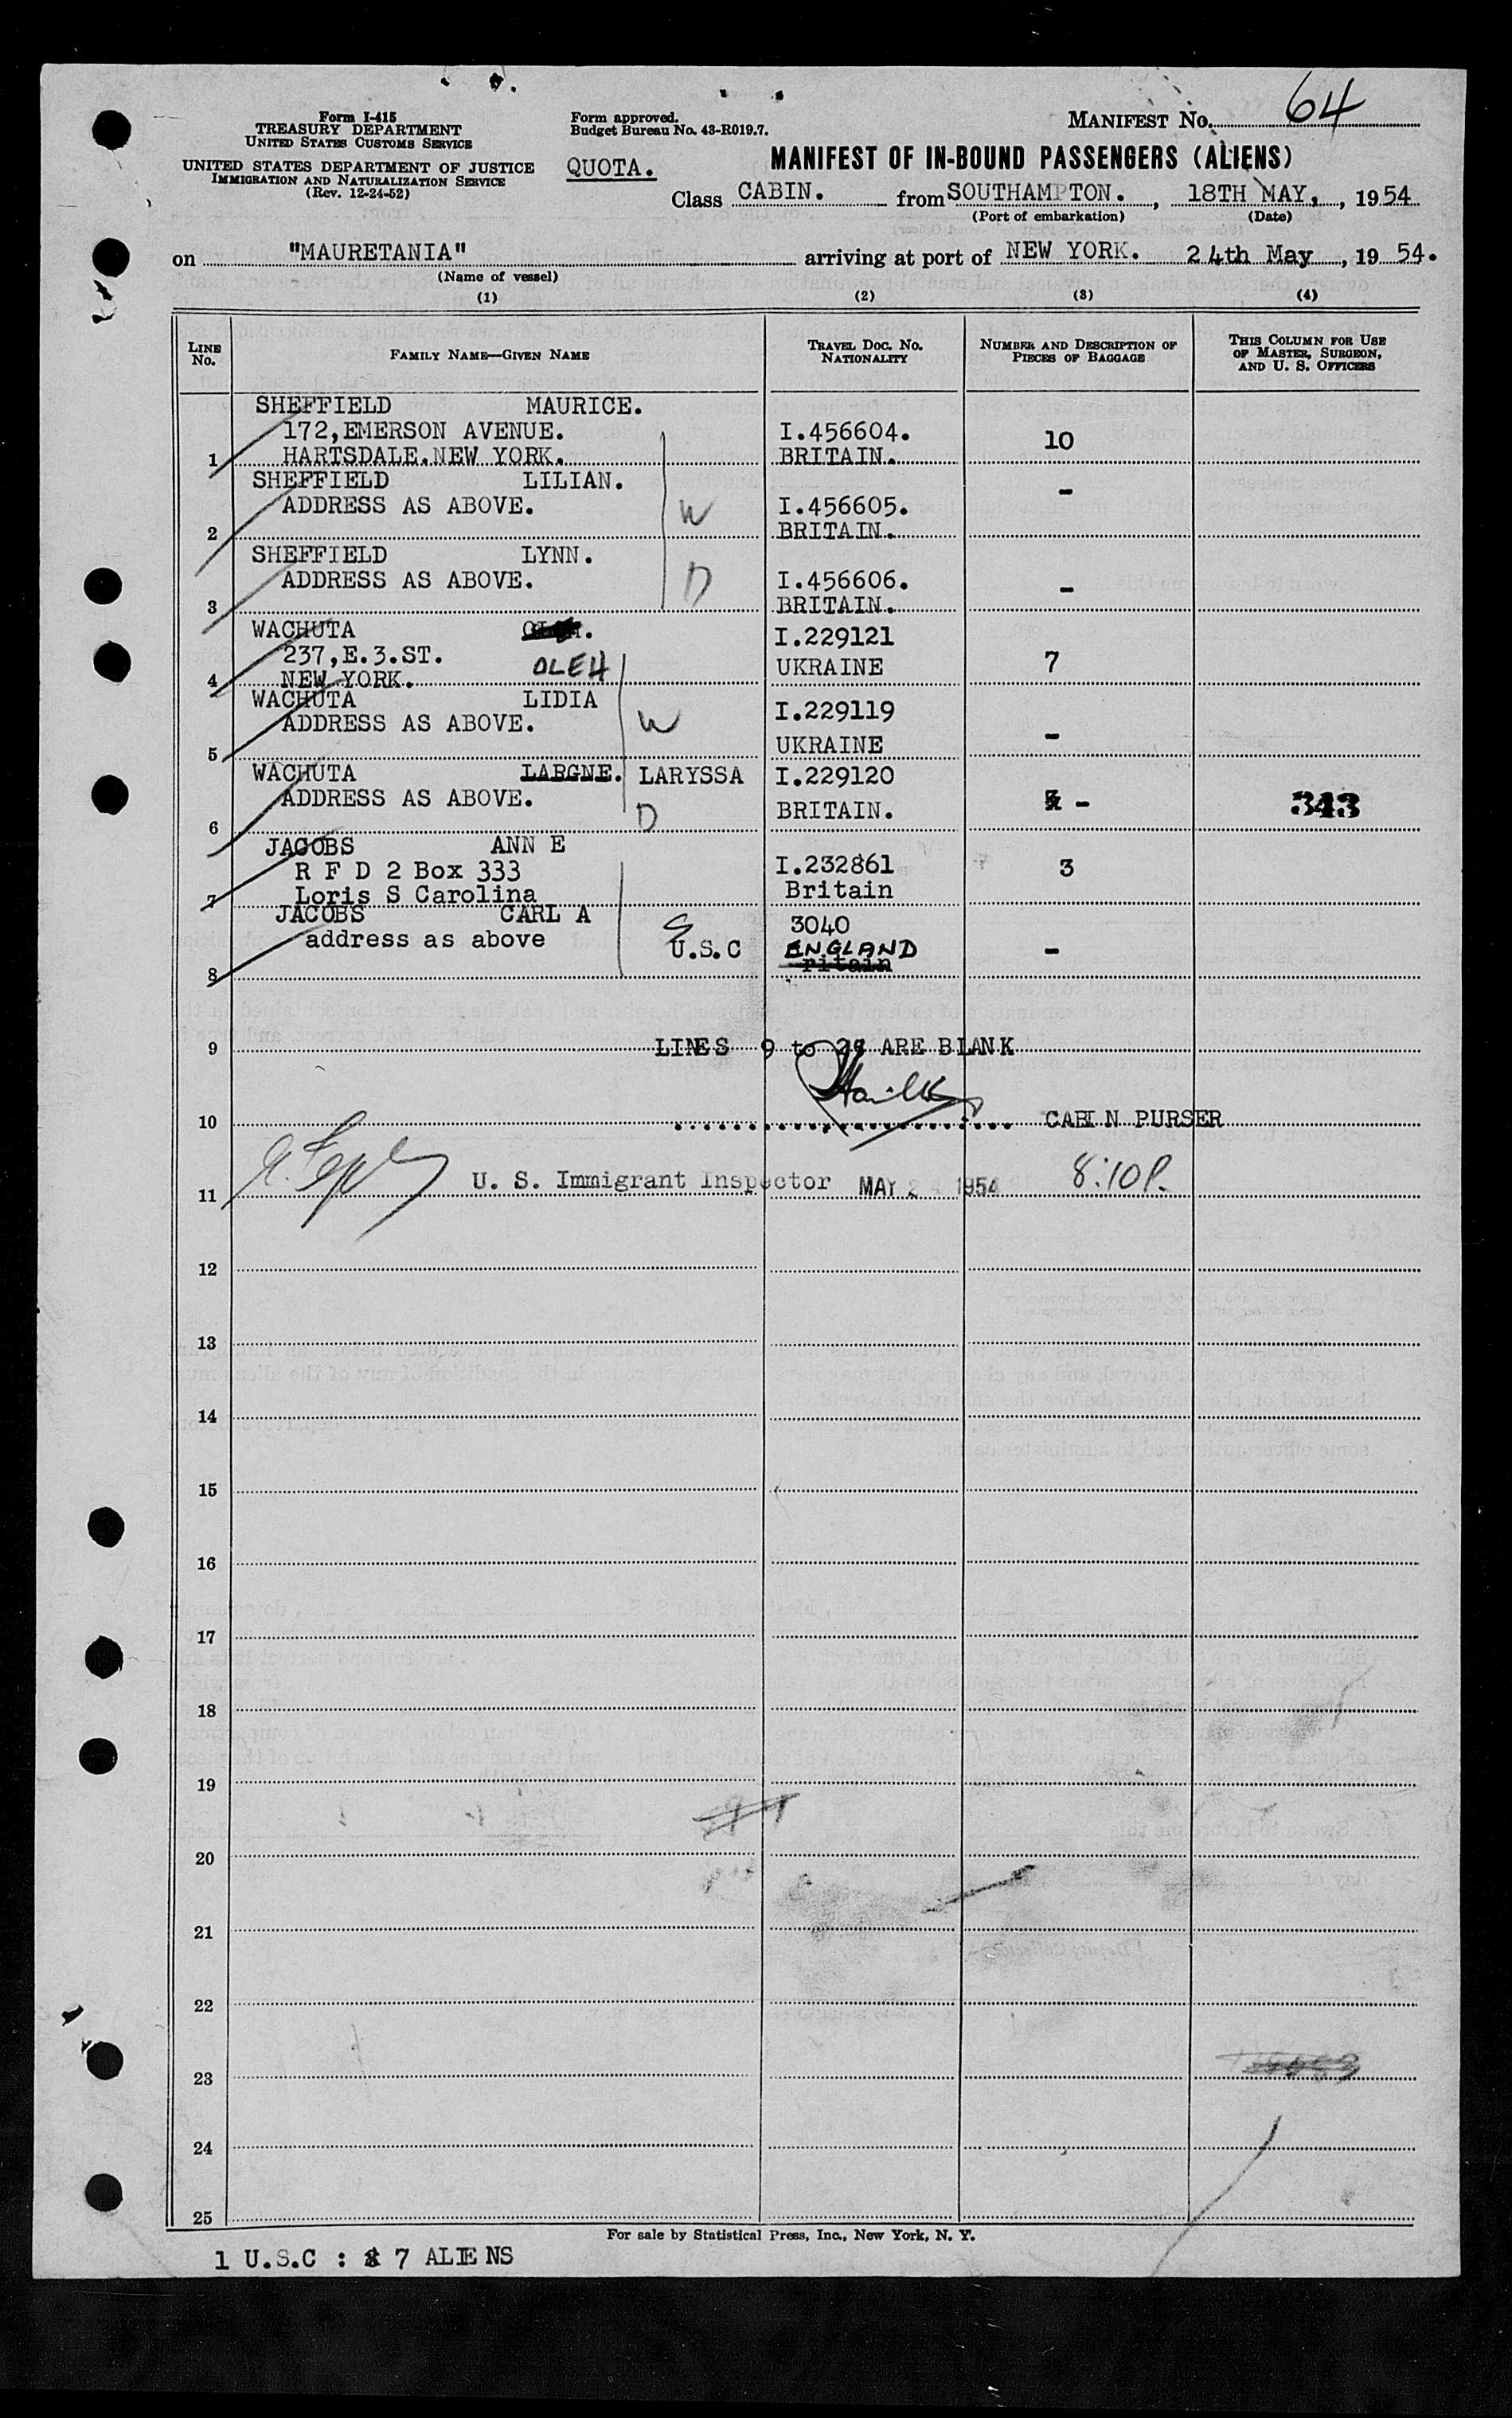 Form I-415
TREASURY DEPARTMENT
UNITED STATES CUSTOMS SERVICE
UNITED STATES DEPARTMENT OF JUSTICE
IMMIGRATION AND NATURALIZATION SERVICE
(Rev. 12-24-52)
Form approved.
Budget Bureau No. 43-R019.7.
QUOTA.
MANIFEST No. 64
MANIFEST OF IN-BOUND PASSENGERS (ALIENS)
Class CABIN. from SOUTHAMPTON. , 18TH MAY, , 1954
(Port of embarkation) (Date)
on "MAURETANIA" arriving at port of NEW YORK. 24th May , 19 54.
(Name of vessel)
(1) (2) (3) (4)
LINE No. FAMILY NAME—GIVEN NAME TRAVEL DOC. NO. NATIONALITY NUMBER AND DESCRIPTION OF PIECES OF BAGGAGE THIS COLUMN FOR USE OF MASTER, SURGEON, AND U. S. OFFICERS
SHEFFIELD MAURICE.
172,EMERSON AVENUE. I.456604. 10
1 HARTSDALE.NEW YORK. BRITAIN.
SHEFFIELD LILIAN. -
ADDRESS AS ABOVE. W I.456605.
2 BRITAIN.
SHEFFIELD LYNN.
ADDRESS AS ABOVE. D I.456606. -
3 BRITAIN.
WACHUTA I.229121
237,E.3.ST. OLEH UKRAINE 7
4 NEW YORK.
WACHUTA LIDIA I.229119
ADDRESS AS ABOVE. W
5 UKRAINE -
WACHUTA LARGNE. LARYSSA I.229120
ADDRESS AS ABOVE. BRITAIN. - 343
6 D
JACOBS ANN E
R F D 2 Box 333 I.232861 3
7 Loris S Carolina Britain
JACOBS CARL A 3040
address as above S U.S.C ENGLAND -
8 ritain
9 LINES 9 to 29 ARE BLANK
10 CABIN PURSER
11 U. S. Immigrant Inspector MAY 24 1954 8:10P.
12
13
14
15
16
17
18
19
20
21
22
23
24
25
For sale by Statistical Press, Inc., New York, N. Y.
1 U.S.C : 7 ALIENS